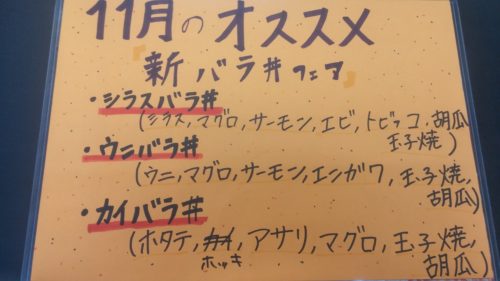 11月のオススメ
『新バラ丼フェア』
・シラスバラ丼
(シラス,マグロ,サーモン,エビ,トビッコ,胡瓜
玉子焼)
・ウニバラ丼
(ウニ,マグロ,サーモン,エンガワ,玉子焼,
胡瓜)
・カイバラ丼
(ホタテ,ホッキ,アサリ,マグロ,玉子焼,
胡瓜)